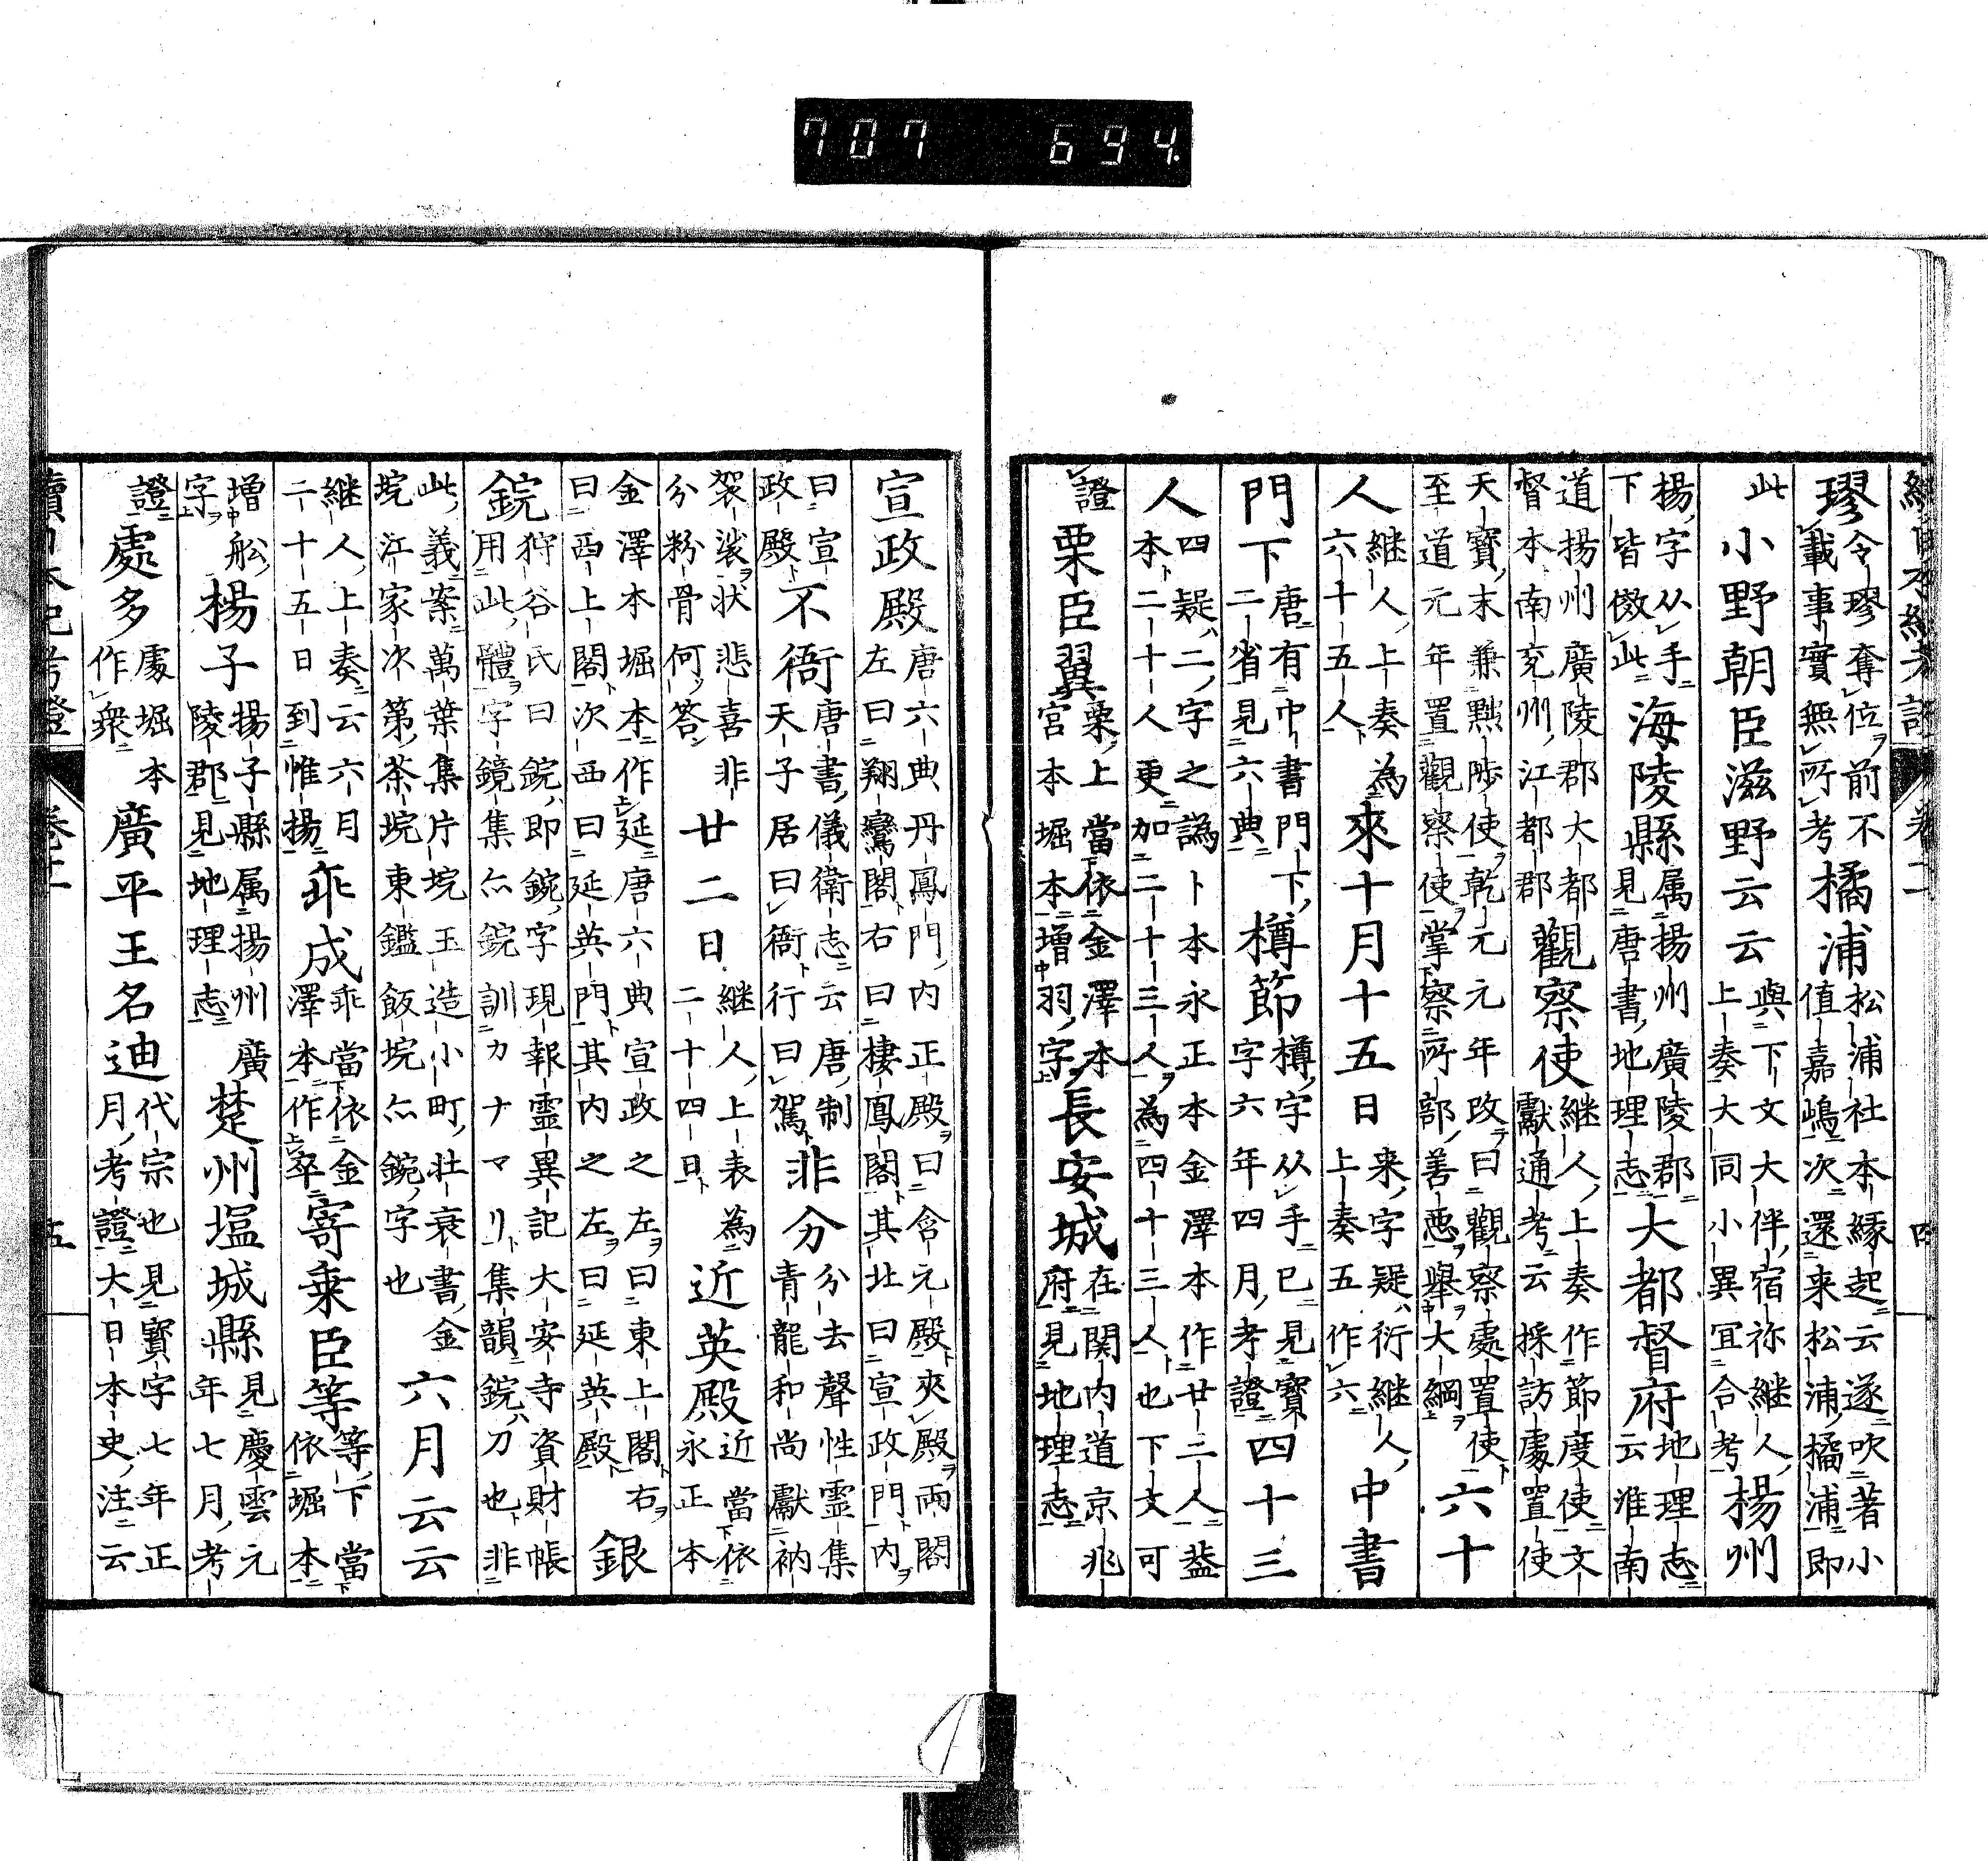 707 694
續日本紀考證 卷十二 四
璆令璆奪位前不載事實無所考橘浦松浦社本縁起云遂吹著小值嘉嶋次還来松浦橘浦即
此小野朝臣滋野云云與下文大伴宿祢継人上奏大同小異宜合考楊州
揚字从手下皆倣此海陵縣属揚州廣陵郡見唐書地理志大都督府地理志云淮南
道揚州廣陵郡大都督本南兖州江都郡觀察使継人上奏作節度使文獻通考云採訪處置使
天寶末兼黜陟使乾元元年改曰觀察處置使至道元年置觀察使掌察所部善悪舉大綱六十
人継人上奏為六十五人來十月十五日来字疑衍継人上奏五作六中書
門下唐有中書門下二省見六典樽節樽字从手已見寳字六年四月考證四十三
人四疑二字之譌卜本永正本金澤本作廿二人葢本二十人更加二十三人為四十三人也下文可
證栗臣翼栗上當依金澤本宮本堀本増羽字長安城在関内道京兆府見地理志
宣政殿唐六典丹鳳門内正殿曰含元殿夾殿兩閣左曰翔鸞閣右曰棲鳳閣其北曰宣政門内
曰宣政殿不衙唐書儀衛志云唐制天子居曰衙行曰駕非分分去聲性霊集青龍和尚獻衲
袈裟状悲喜非分粉骨何答廿二日継人上表為二十四日近英殿近當依永正本
金澤本堀本作延唐六典宣政之左曰東上閣右曰西上閣次西曰延英門其内之左曰延英殿銀
鋺狩谷氏曰鋺即鋺字現報霊異記大安寺資財帳用此體字鏡集尒鋺訓カナマリ集韻鋺刀也非
此義案萬葉集片垸玉造小町壮衰書金垸江家次第茶垸東鑑飯垸尒鋺字也六月云云
継人上奏云六月二十五日到惟揚乖成乖當依金澤本作卒寄乗臣等等下當依堀本
増舩字揚子揚子縣属揚州廣陵郡見地理志楚州塩城縣見慶雲元年七月考
證處多處堀本作衆廣平王名迪代宗也見寳字七年正月考證大日本史注云
續日本紀考證 卷十二 五